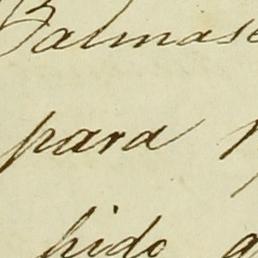 Balmase
para
hido